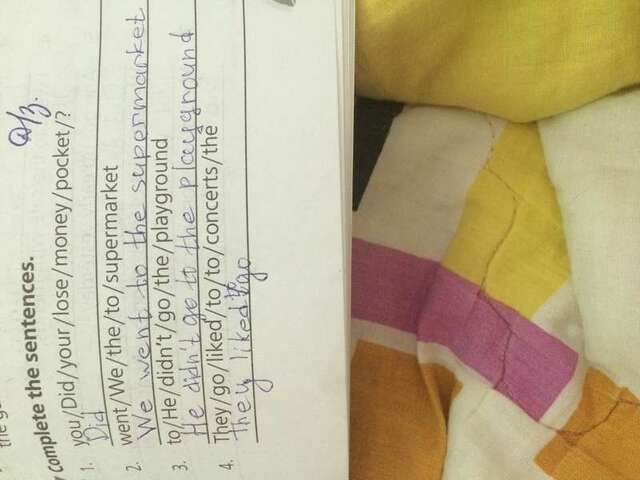 the g
Complete the sentences.
Д/з.
1. you/Did/your/lose/money/pocket/?
Did
2. went/We/the/to/supermarket
We went to the supermarket
3. to/He/didn't/go/the/playground
He didn't go to the playground
4. They/go/liked/to/to/concerts/the
They liked to go